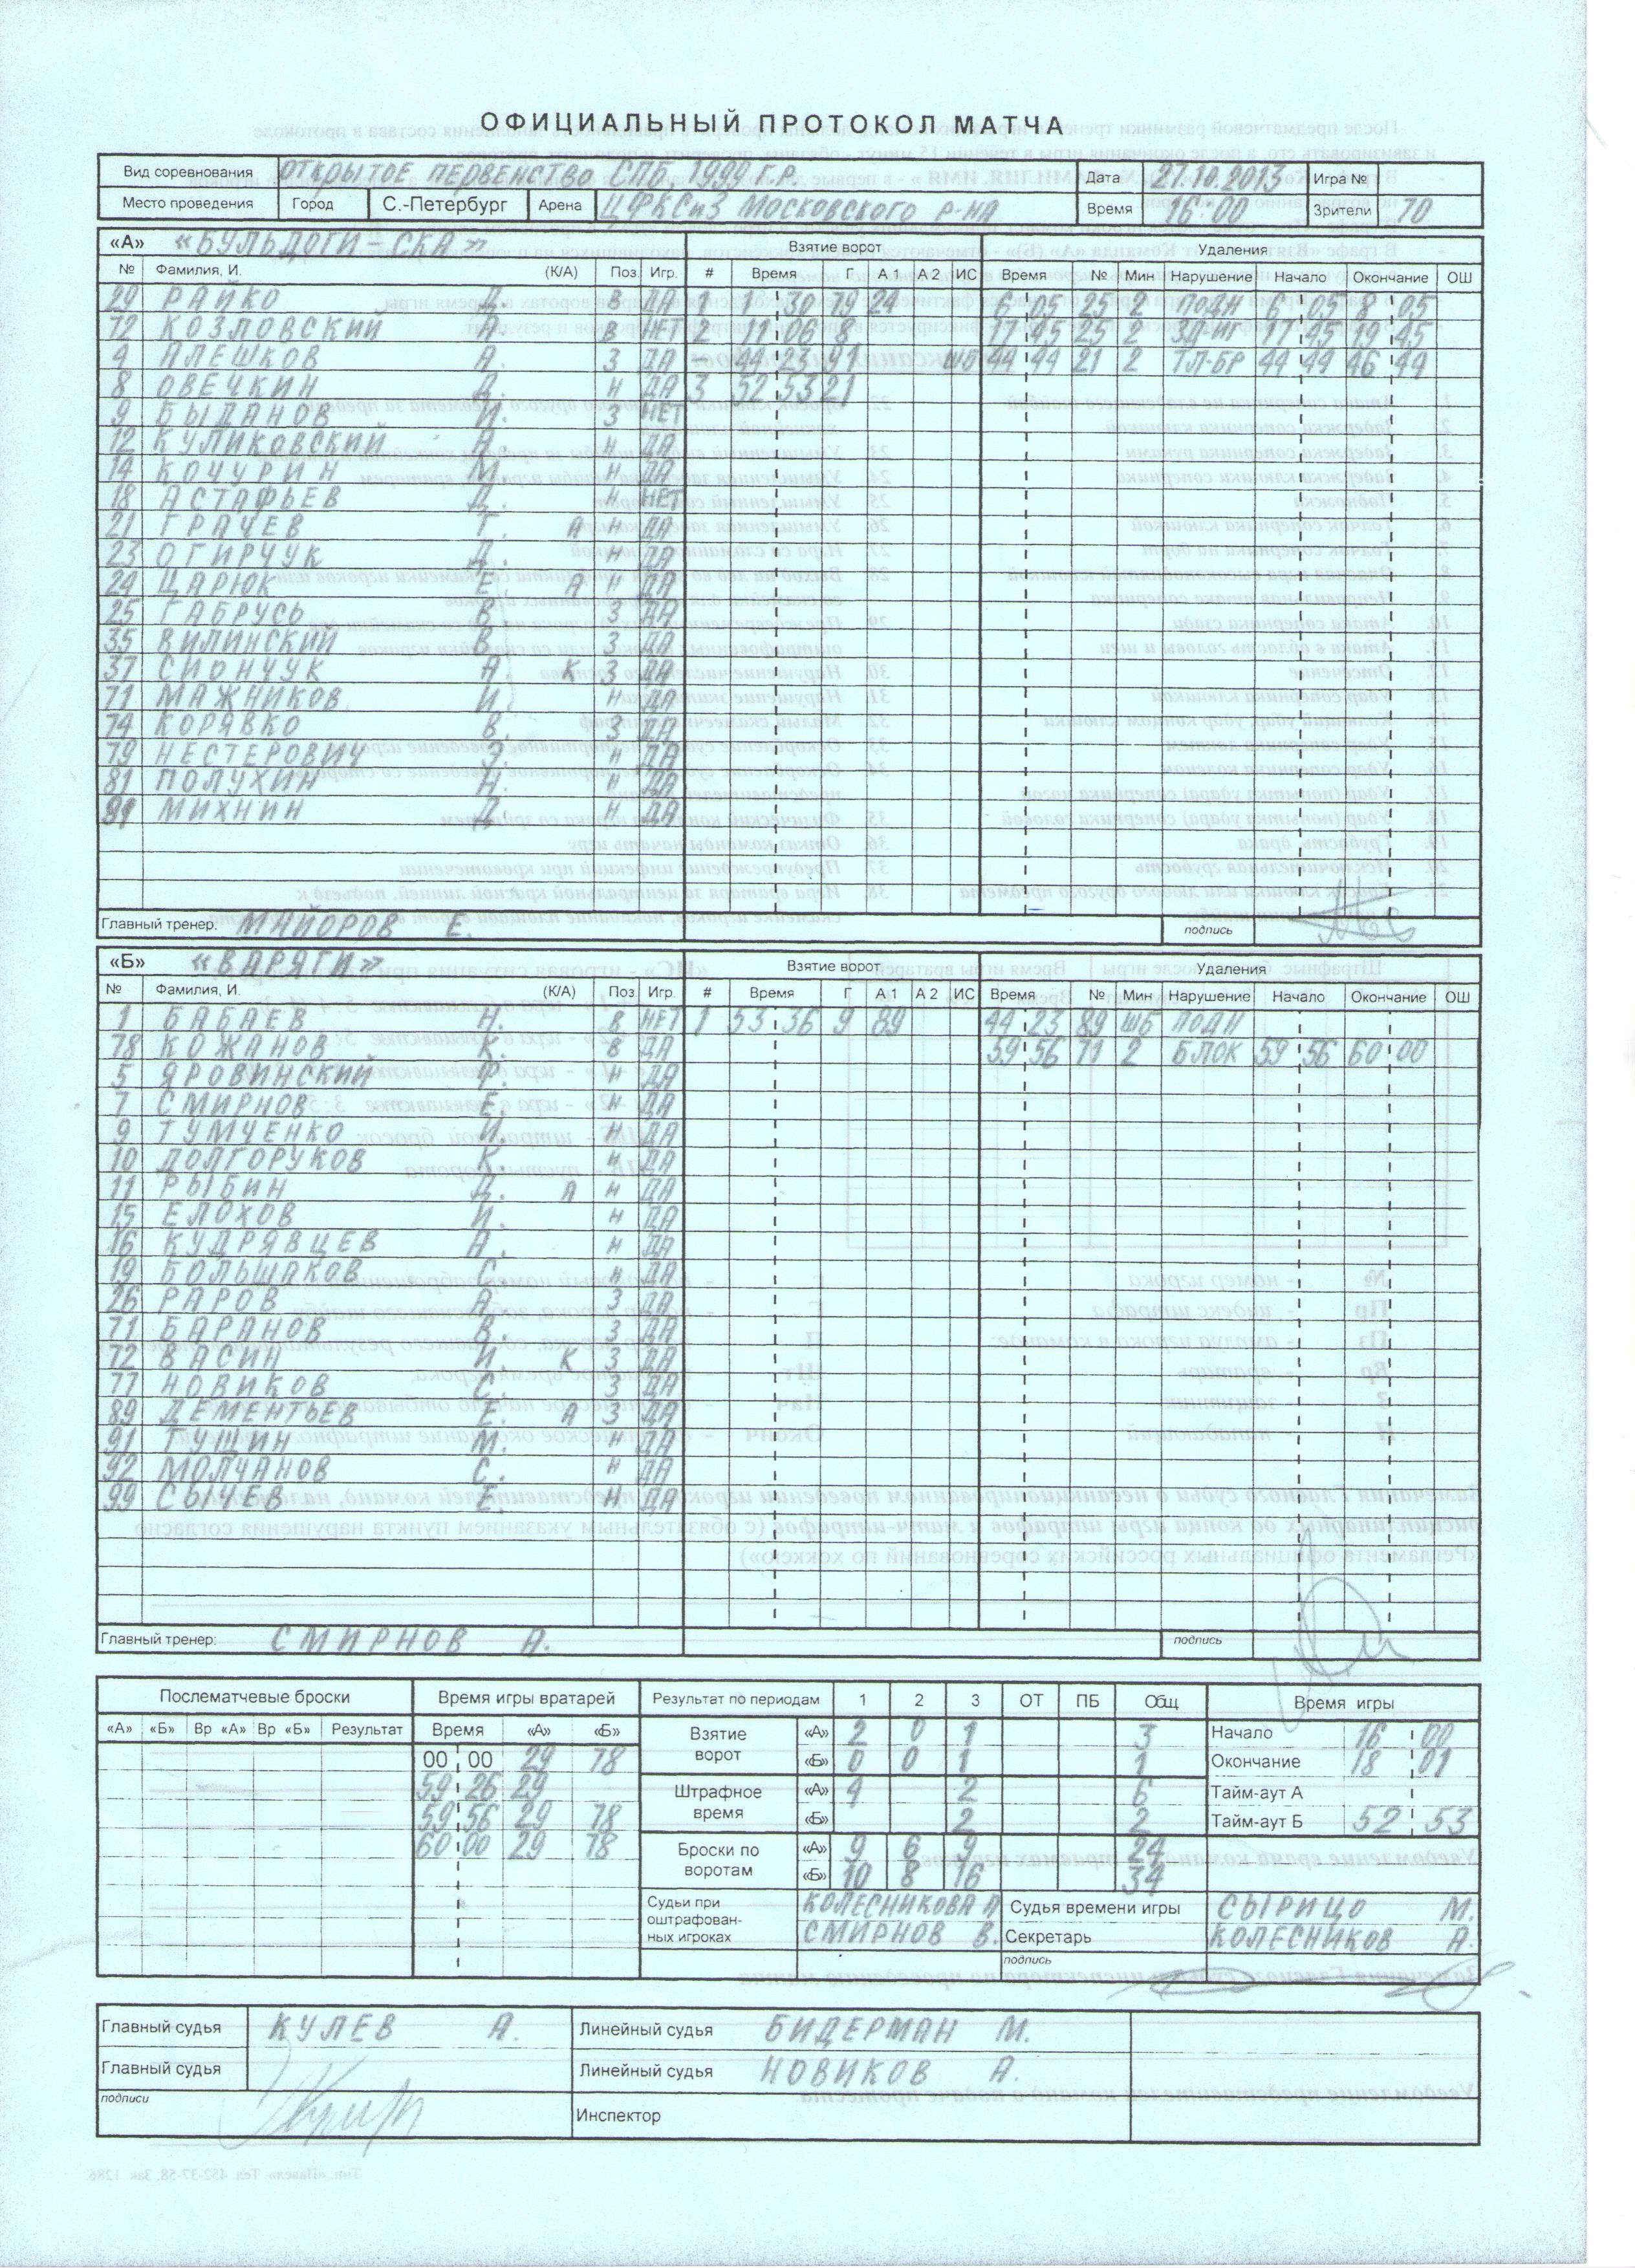 ОФИЦИАЛЬНЫЙ ПРОТОКОЛ МАТЧА
Вид соревнования ОТКРЫТОЕ ПЕРВЕНСТВО СПБ 1999 Г.Р. Дата 27.10.2013 Игра №
Место проведения Город С.-Петербург Арена ЦФКСиЗ МОСКОВСКОГО Р-НА Время 16:00 Зрители 70
«А» «БУЛЬДОГИ-СКА» Взятие ворот Удаления
№ Фамилия, И. (К/А) Поз. Игр. # Время Г А 1 А 2 ИС Время № Мин Нарушение Начало Окончание ОШ
29 РАЙКО Д. В ДА 1 1 30 79 24 6 05 25 2 ПОДН 6 05 8 05
72 КОЗЛОВСКИЙ В НЕТ 2 11 06 8 17 45 25 2 ЗД-Ш 17 45 19 45
4 АЛЕШКОВ А. З ДА - 44 23 91 ШБ 44 44 21 2 ТЛ-БР 44 44 46 44
8 ОВЕЧКИН Д. Н ДА 3 52 53 21
9 БЫДАНОВ И. З НЕТ
12 КУЛИКОВСКИЙ А. Н ДА
14 КОЧУРИН М. Н ДА
18 АСТАФЬЕВ Д. Н НЕТ
21 ГРАЧЕВ Г. А Н ДА
23 ОГИРЧУК Д. Н ДА
24 ЦАРЮК Е. А Н ДА
25 ГАБРУСЬ В. З ДА
35 ВИЛИНСКИЙ В. З ДА
37 СИОНЧУК А. К З ДА
71 МАЖНИКОВ И. Н ДА
74 КОРЯВКО В. З ДА
79 НЕСТЕРОВИЧ З. Н ДА
81 ПОЛУХИН Н. Н ДА
91 МИХНИН Д. Н ДА
Главный тренер: МАЙОРОВ Е. подпись
«Б» «ВАРЯГИ» Взятие ворот Удаления
№ Фамилия, И. (К/А) Поз Игр. # Время Г А 1 А 2 ИС Время № Мин Нарушение Начало Окончание ОШ
1 БАБАЕВ Н. В НЕТ 1 53 36 9 89 44 23 89 ШБ ПОДН
78 КОЖАНОВ К. В ДА 59 56 71 2 БЛОК 59 56 60 00
5 ЯРОВИНСКИЙ Г. Н ДА
7 СМИРНОВ Е. Н ДА
9 ТУМЧЕНКО И. Н ДА
10 ДОЛГОРУКОВ К. Н ДА
11 РЫБИН Д. А Н ДА
15 ЕЛОХОВ И. Н ДА
16 КУДРЯВЦЕВ А. Н ДА
19 БОЛЬШАКОВ С. Н ДА
26 РАРОВ А. З ДА
71 БАРАНОВ В. З ДА
72 ВАСИН И. К З ДА
77 НОВИКОВ С. З ДА
89 ДЕМЕНТЬЕВ Е. А З ДА
91 ТУЩИН М. Н ДА
92 МОЛЧАНОВ С. Н ДА
99 СЫЧЕВ Е. Н ДА
Главный тренер: СМИРНОВ А. подпись
Послематчевые броски Время игры вратарей Результат по периодам 1 2 3 ОТ ПБ Общ Время игры
«А» «Б» Вр «А» Вр «Б» Результат Время «А» «Б» Взятие ворот «А» 2 0 1 3 Начало 16 00
00 00 29 78 «Б» 0 0 1 1 Окончание 18 01
59 26 29 Штрафное время «А» 4 2 6 Тайм-аут А
59 56 29 78 «Б» 2 2 Тайм-аут Б 52 53
60 00 29 78 Броски по воротам «А» 9 6 9 24
«Б» 10 8 16 34
Судьи при оштрафован-ных игроках КОЛЕСНИКОВА А Судья времени игры СЫРИЦО М.
СМИРНОВ В. Секретарь КОЛЕСНИКОВ А.
подпись
Главный судья КУЛЕВ А. Линейный судья БИДЕРМАН М.
Главный судья Линейный судья НОВИКОВ А.
подписи Инспектор